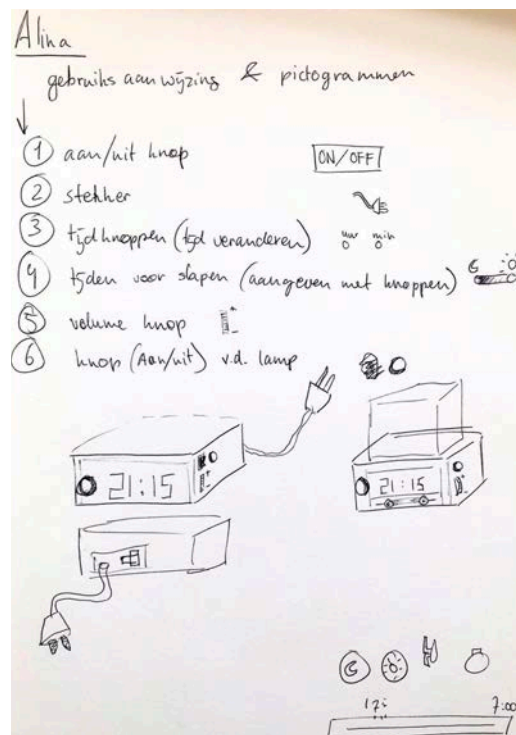 Alina
gebruiks aanwijzing & pictogrammen
1 aan/uit knop ON/OFF
2 stekker
3 tijdknoppen (tijd veranderen) uur min
4 tijden voor slapen (aangeven met knoppen)
5 volume knop + -
6 knop (Aan/uit) v.d. lamp
21:15
21:15
7:00